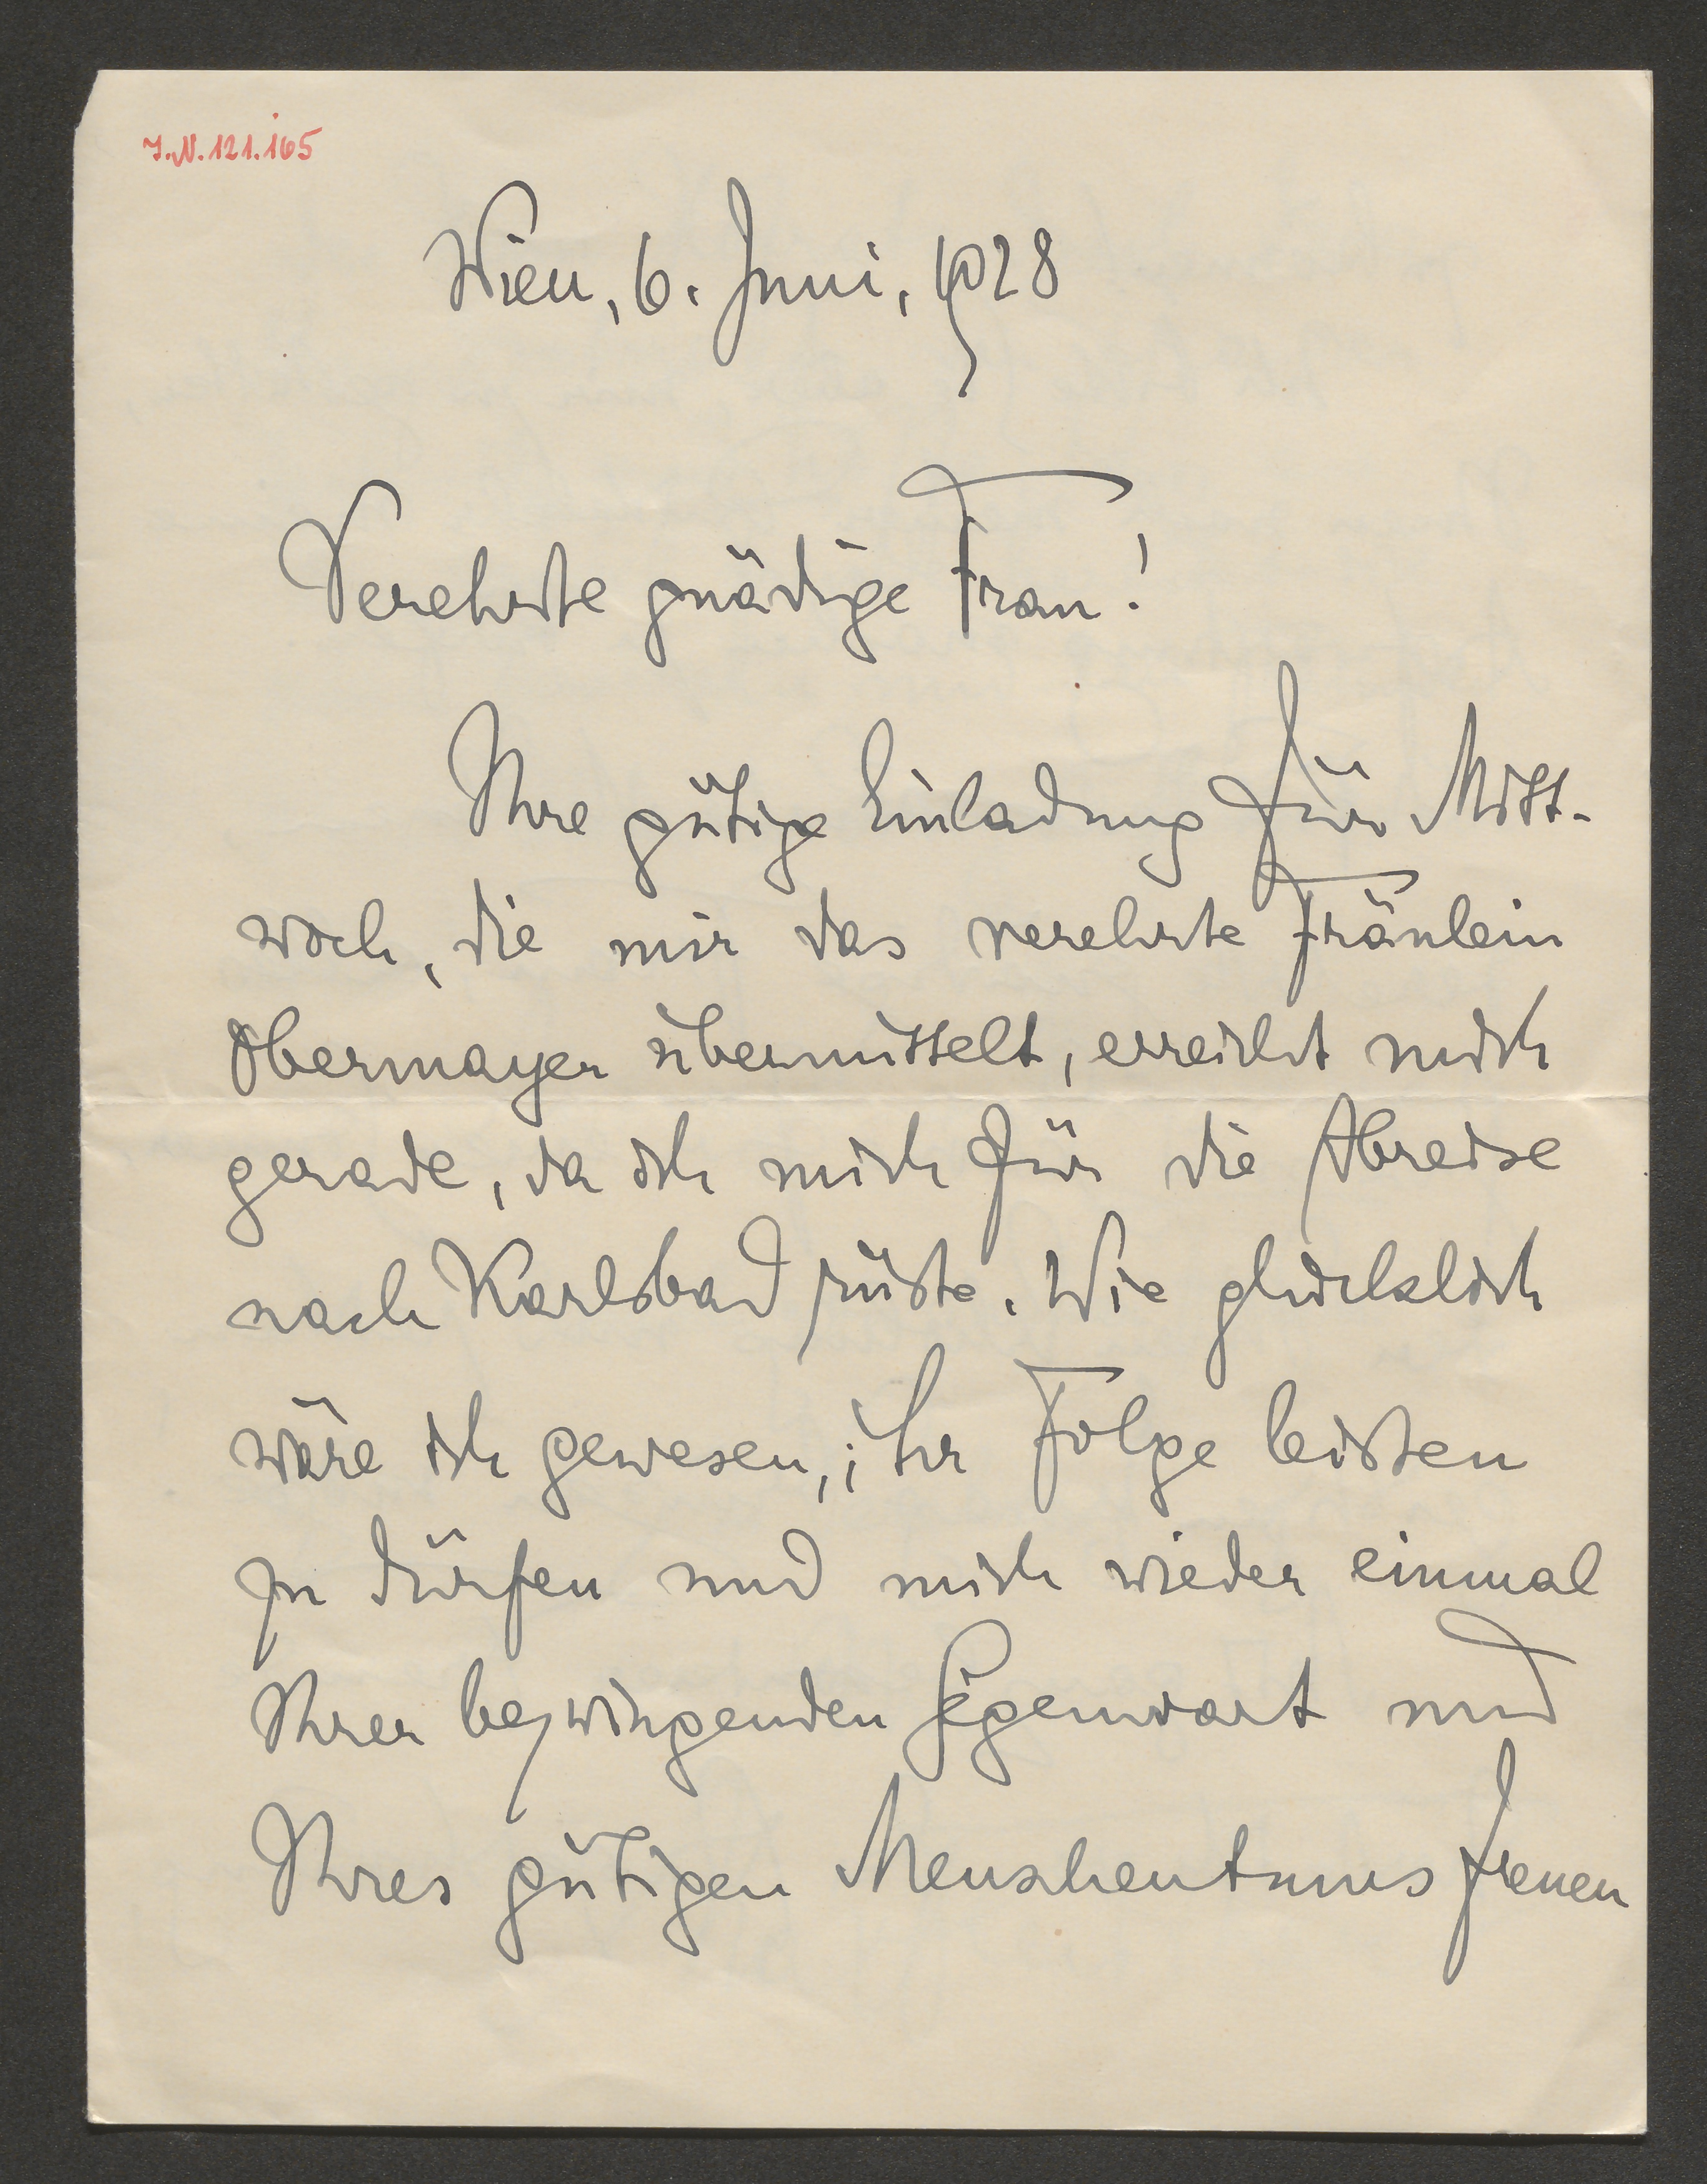 J.N. 121.165
Wien, 6. Juni, 1928
Verehrte gnädige Frau!
Ihre gütige Einladung für Mitt-
woch, die mir das verehrte Fräulein
Obermayer übermittelt, erreicht mich
gerade, da ich mich für die Abreise
nach Karlsbad rüste. Wie glücklich
wäre ich gewesen, ihr Folge leisten
zu dürfen und mich wieder einmal
Ihrer bezwingenden Gegenwart und
Ihres gütigen Menschentums freuen